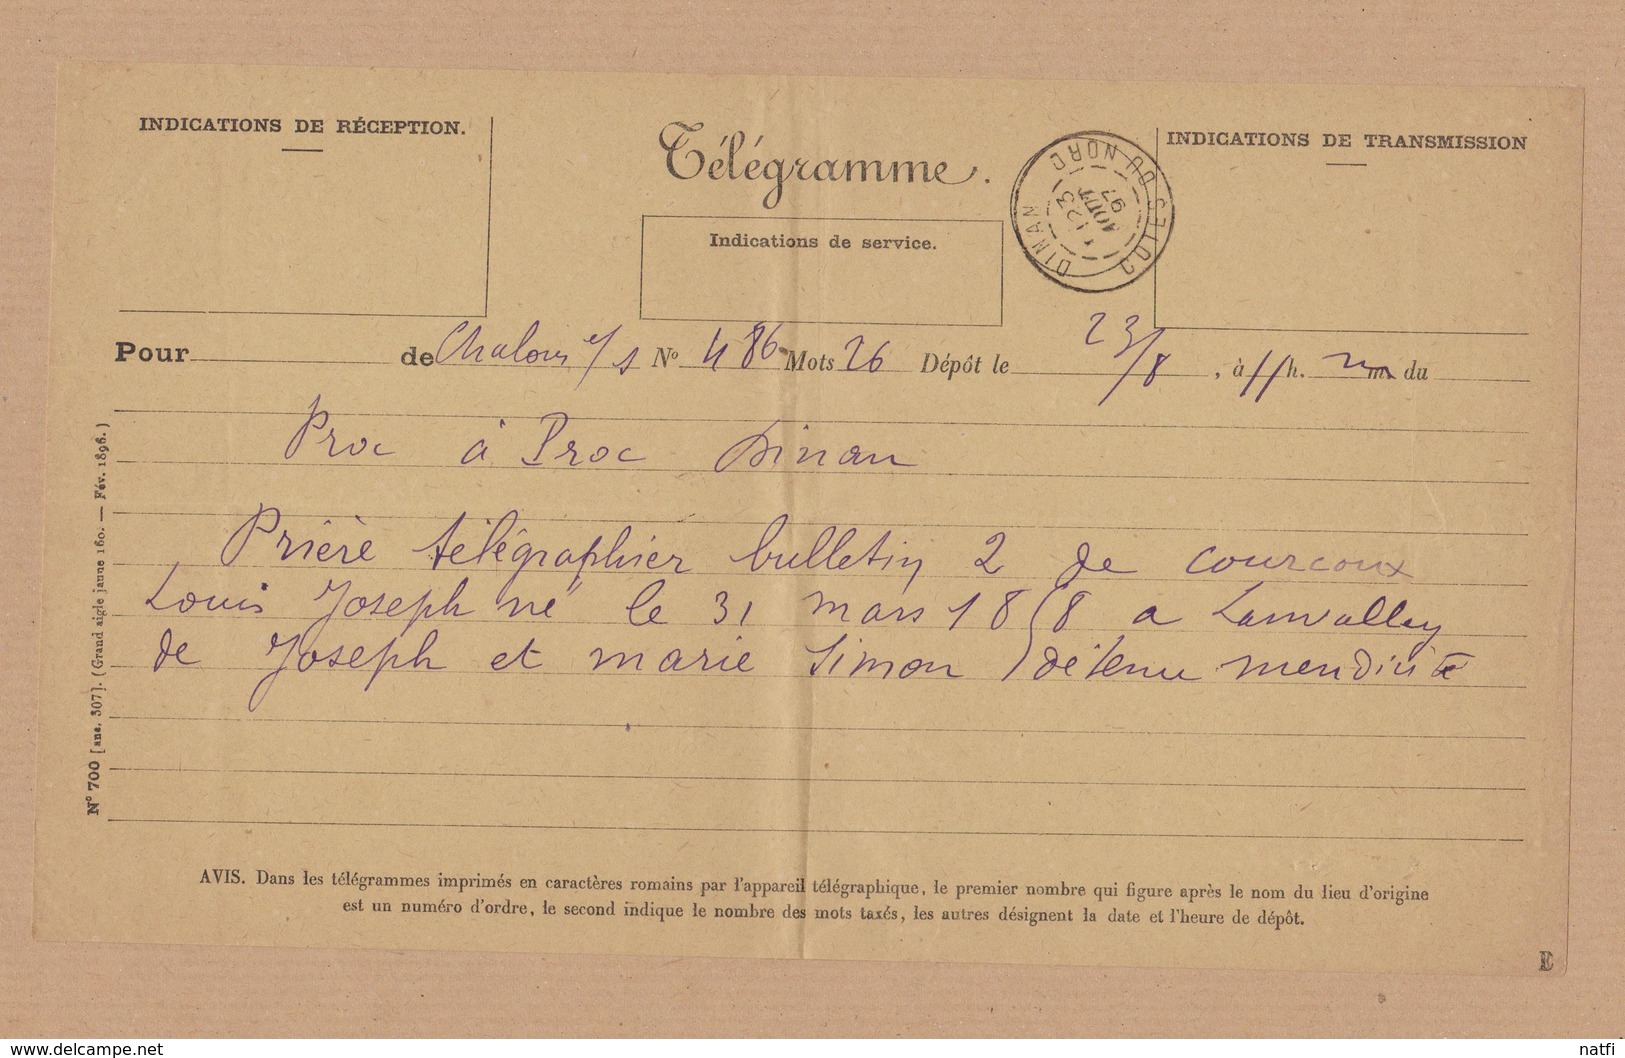 INDICATIONS DE RÉCEPTION.
Télégramme.
INDICATIONS DE TRANSMISSION
Indications de service.
DINAN CÔTES DU NORD
23 AOUT 97
Pour de Chalons s/s N° 486 Mots 26 Dépôt le 23/8, à 11 h. m du
Proc à Proc Dinan
Prière télégraphier bulletin 2 de courcoux
Louis Joseph né le 31 mars 1858 a Lanvallay
de Joseph et marie Simon détenu mendicité
N° 700 [anc. 307]. (Grand aigle jaune 160. — Fév. 1896.)
AVIS. Dans les télégrammes imprimés en caractères romains par l'appareil télégraphique, le premier nombre qui figure après le nom du lieu d'origine
est un numéro d'ordre, le second indique le nombre des mots taxés, les autres désignent la date et l'heure de dépôt.
E
www.delcampe.net
natfi